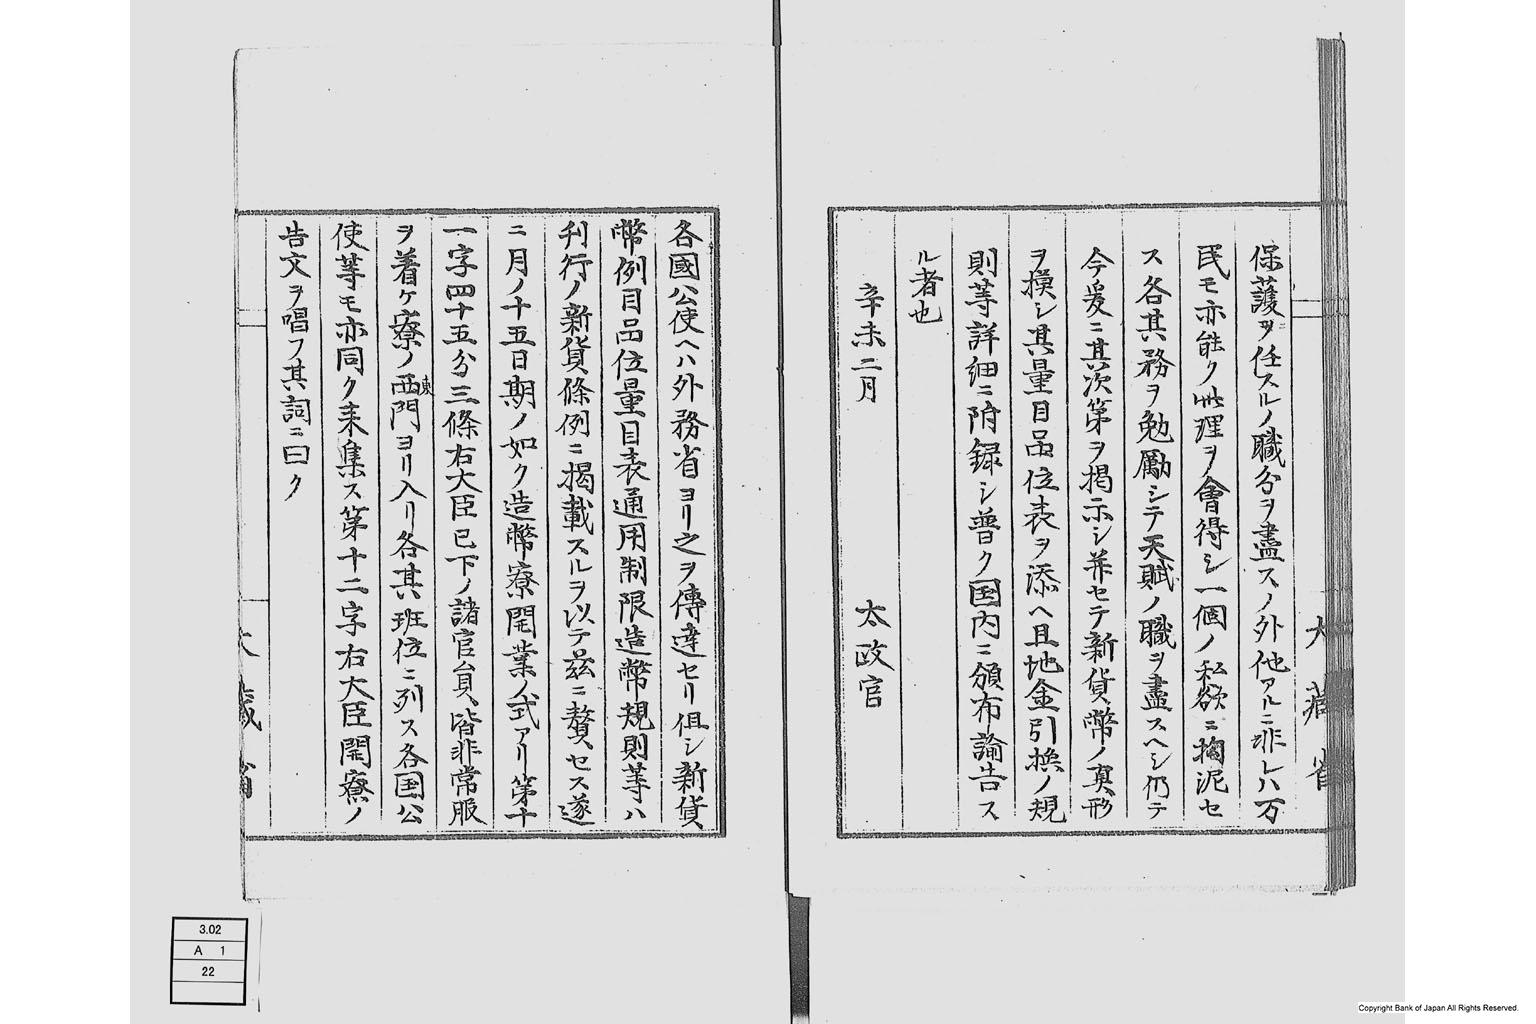 保護ヲ任スルノ職分ヲ盡スノ外他アルニ非レハ万
民モ亦能ク此理ヲ會得シ一個ノ私欲ニ拘泥セ
ス各其務ヲ勉勵シテ天賦ノ職ヲ盡スヘシ仍テ
今爰ニ其次第ヲ掲示シ并セテ新貨幣ノ眞形
ヲ摸シ其量目品位表ヲ添ヘ且地金引換ノ規
則等詳細ニ附録シ普ク国内ニ頒布諭告ス
ル者也
辛未二月 太政官
大藏省
各國公使ヘハ外務省ヨリ之ヲ傳達セリ但シ新貨
幣例目品位量目表通用制限造幣規則等ハ
刊行ノ新貨條例ニ掲載スルヲ以テ茲ニ贅セス遂
ニ月ノ十五日期ノ如ク造幣寮開業ノ式アリ第十
一字四十五分三條右大臣已下ノ諸官員皆非常服
ヲ着ケ寮ノ西東門ヨリ入リ各其班位ニ列ス各国公
使等モ亦同ク来集ス第十二字右大臣開寮ノ
告文ヲ唱フ其詞ニ曰ク
大藏省
3.02
A 1
22
Copyright Bank of Japan All Rights Reserved.